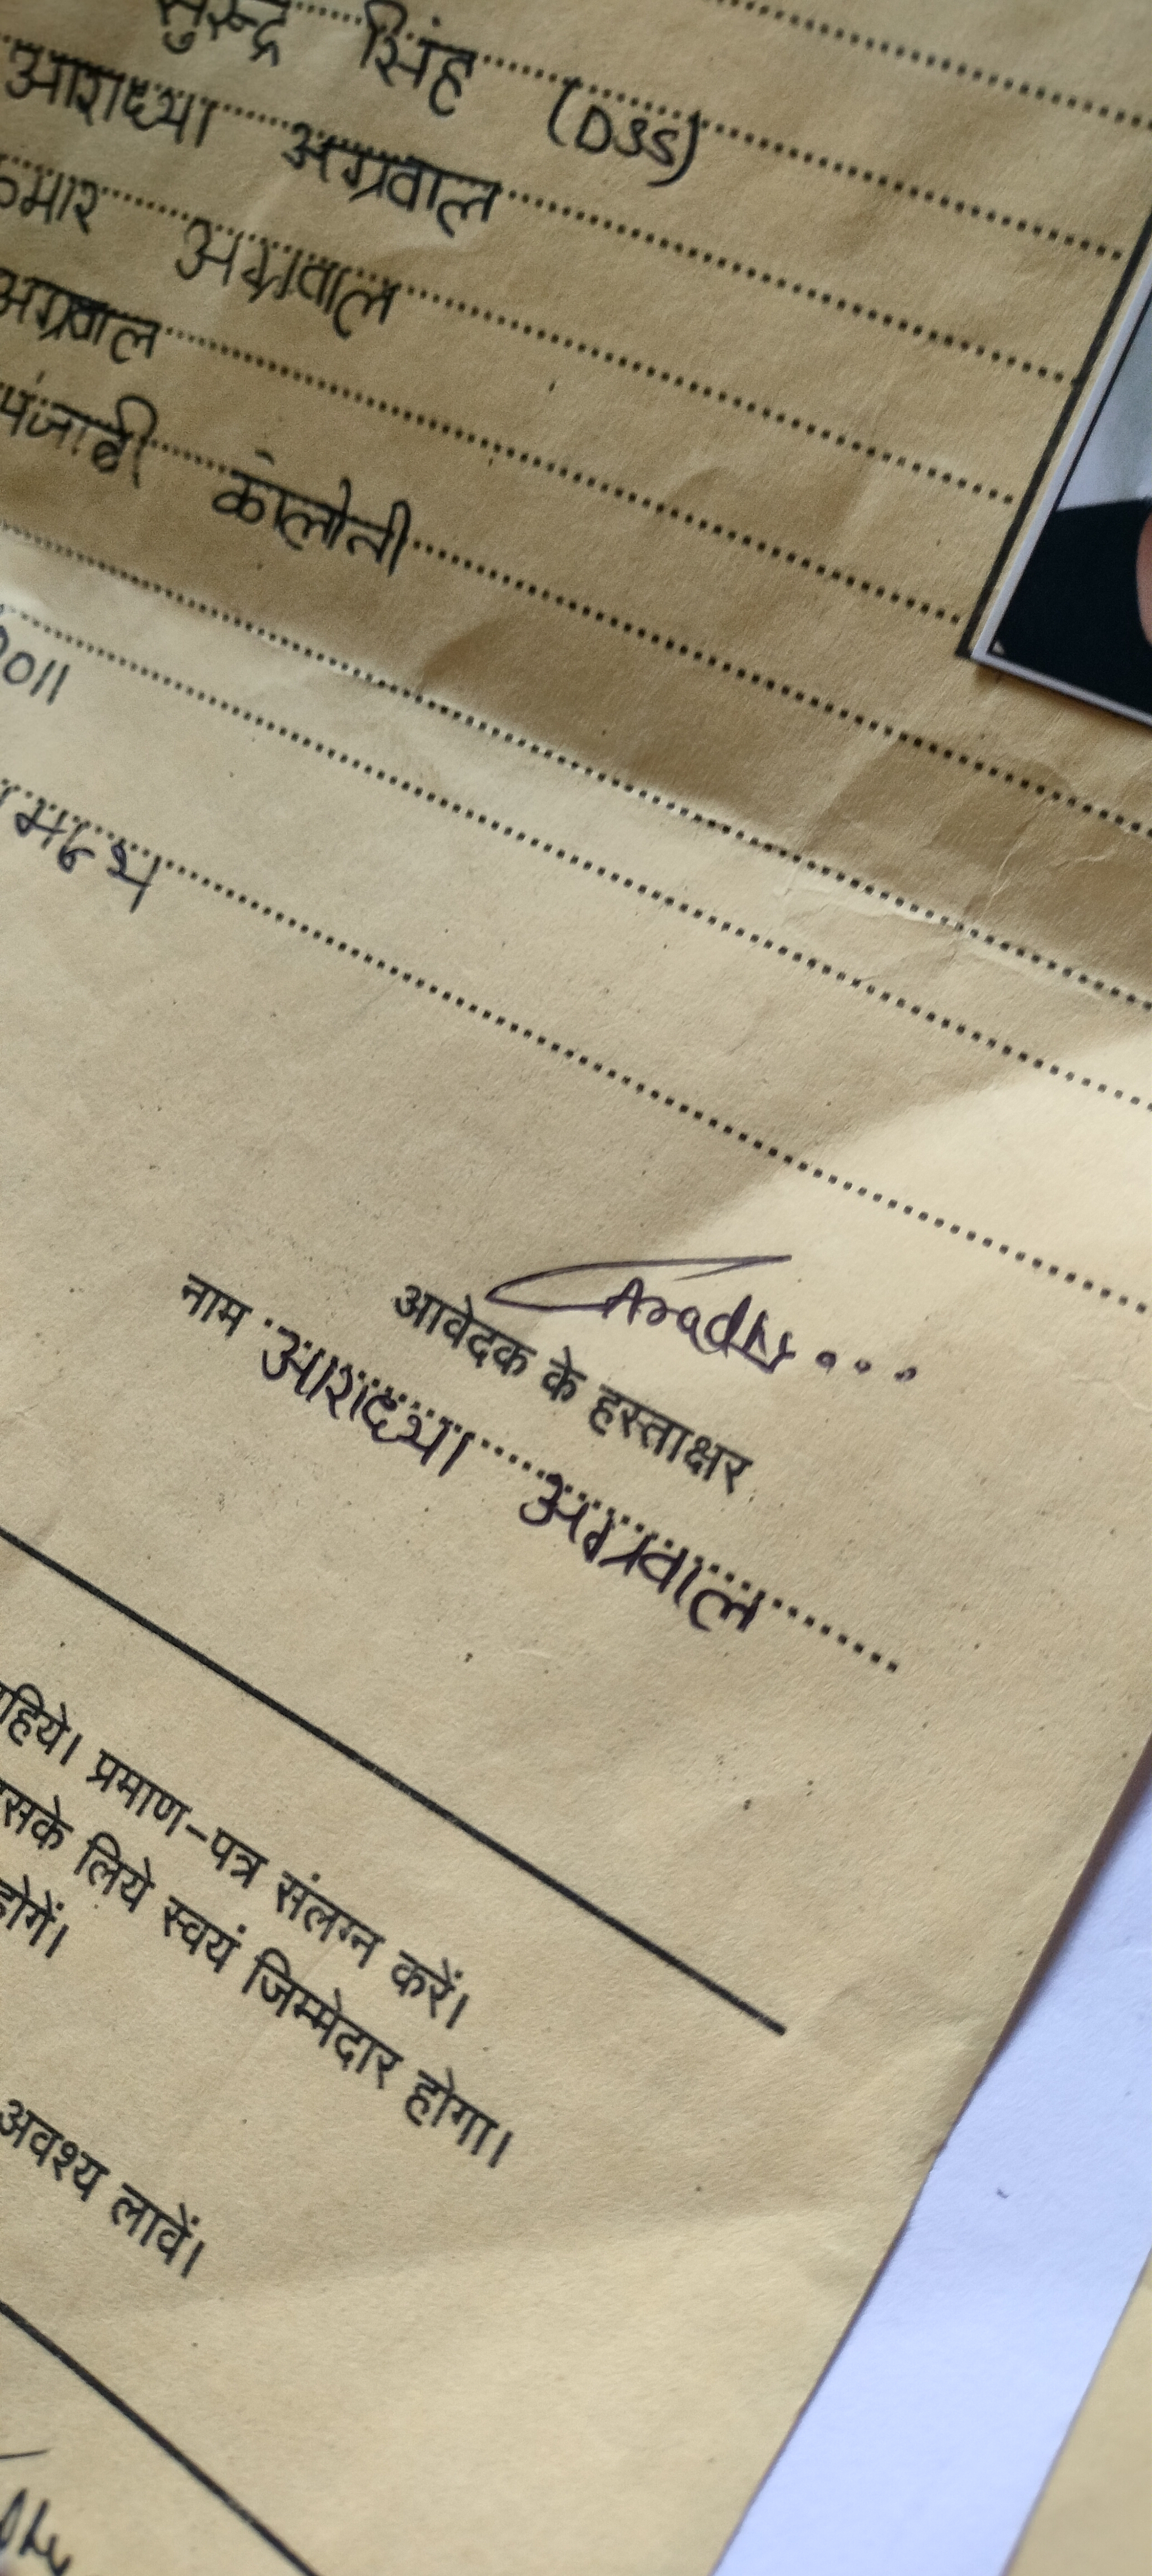 सुरेन्द्र सिंह (DSS)
आराध्या अग्रवाल
कुमार अग्रवाल
अग्रवाल
पंजाबी कॉलोनी
2011
Aradhy...
आवेदक के हस्ताक्षर
नाम आराध्या अग्रवाल
प्रमाण-पत्र संलग्न करें।
लिये स्वयं जिम्मेदार होगा।
होगें।
अवश्य लावें।